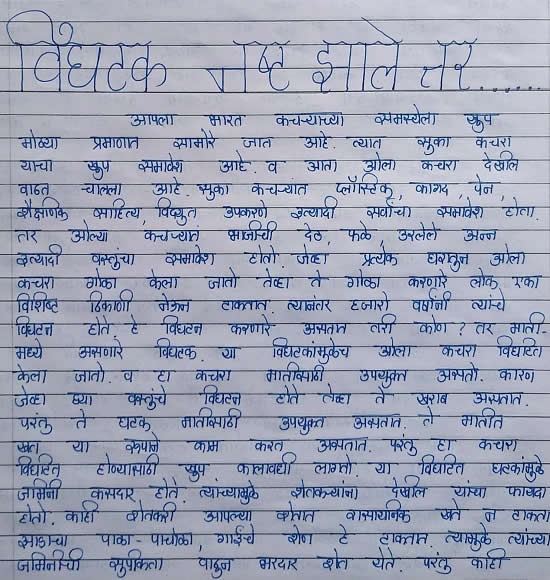 विघटक नष्ट झाले तर......
आपला भारत कचऱ्याच्या समस्येला खुप
मोठ्या प्रमाणात सामोरे जात आहे. त्यात सुका कचरा
याचा खुप समावेश आहे. व आता ओला कचरा देखील
वाढत चालला आहे. सुका कचऱ्यात प्लॉस्टिक, कागद, पेन,
शैक्षणिक साहित्य, विद्युत उपकरणे इत्यादी सर्वांचा समावेश होतो.
तर ओल्या कचऱ्यात भाजीची देठ, फळे उरलेले अन्न
इत्यादी वस्तुंचा समावेश होतो. जेव्हा प्रत्येक घरातुन ओला
कचरा गोळा केला जातो तेव्हा ते गोळा करणारे लोक एका
विशिष्ट ठिकाणी नेऊन टाकतात. त्यानंतर हजारो वर्षांनी त्यांचे
विघटन होते हे विघटन करणारे असतात तरी कोण ? तर माती-
मध्ये असणारे विघटक. या विघटकांमुळेच ओला कचरा विघटित
केला जातो. व हा कचरा मातीसाठी उपयुक्त असतो. कारण
जेव्हा ह्या वस्तुंचे विघटन होते तेव्हा ते खराब असतात.
परंतु ते घटक मातीसाठी उपयुक्त असतात. ते मातीत
खत या रुपाने काम करत असतात. परंतु हा कचरा
विघटित होण्यासाठी खुप कालावधी लागतो. या विघटित घटकांमुळे
जमिनी कसदार होते. त्यांच्यामुळे शेतकऱ्यांना देखील यांचा फायदा
होतो. काही शेतकरी आपल्या शेतात रासायनिक खते न टाकता
झाडाचा पाळा-पाचोळा, गाईचे शेण हे टाकतात. त्यामुळे त्याच्या
जमिनीची सुपिकता वाढुन भरदार शेत येते. परंतु काही